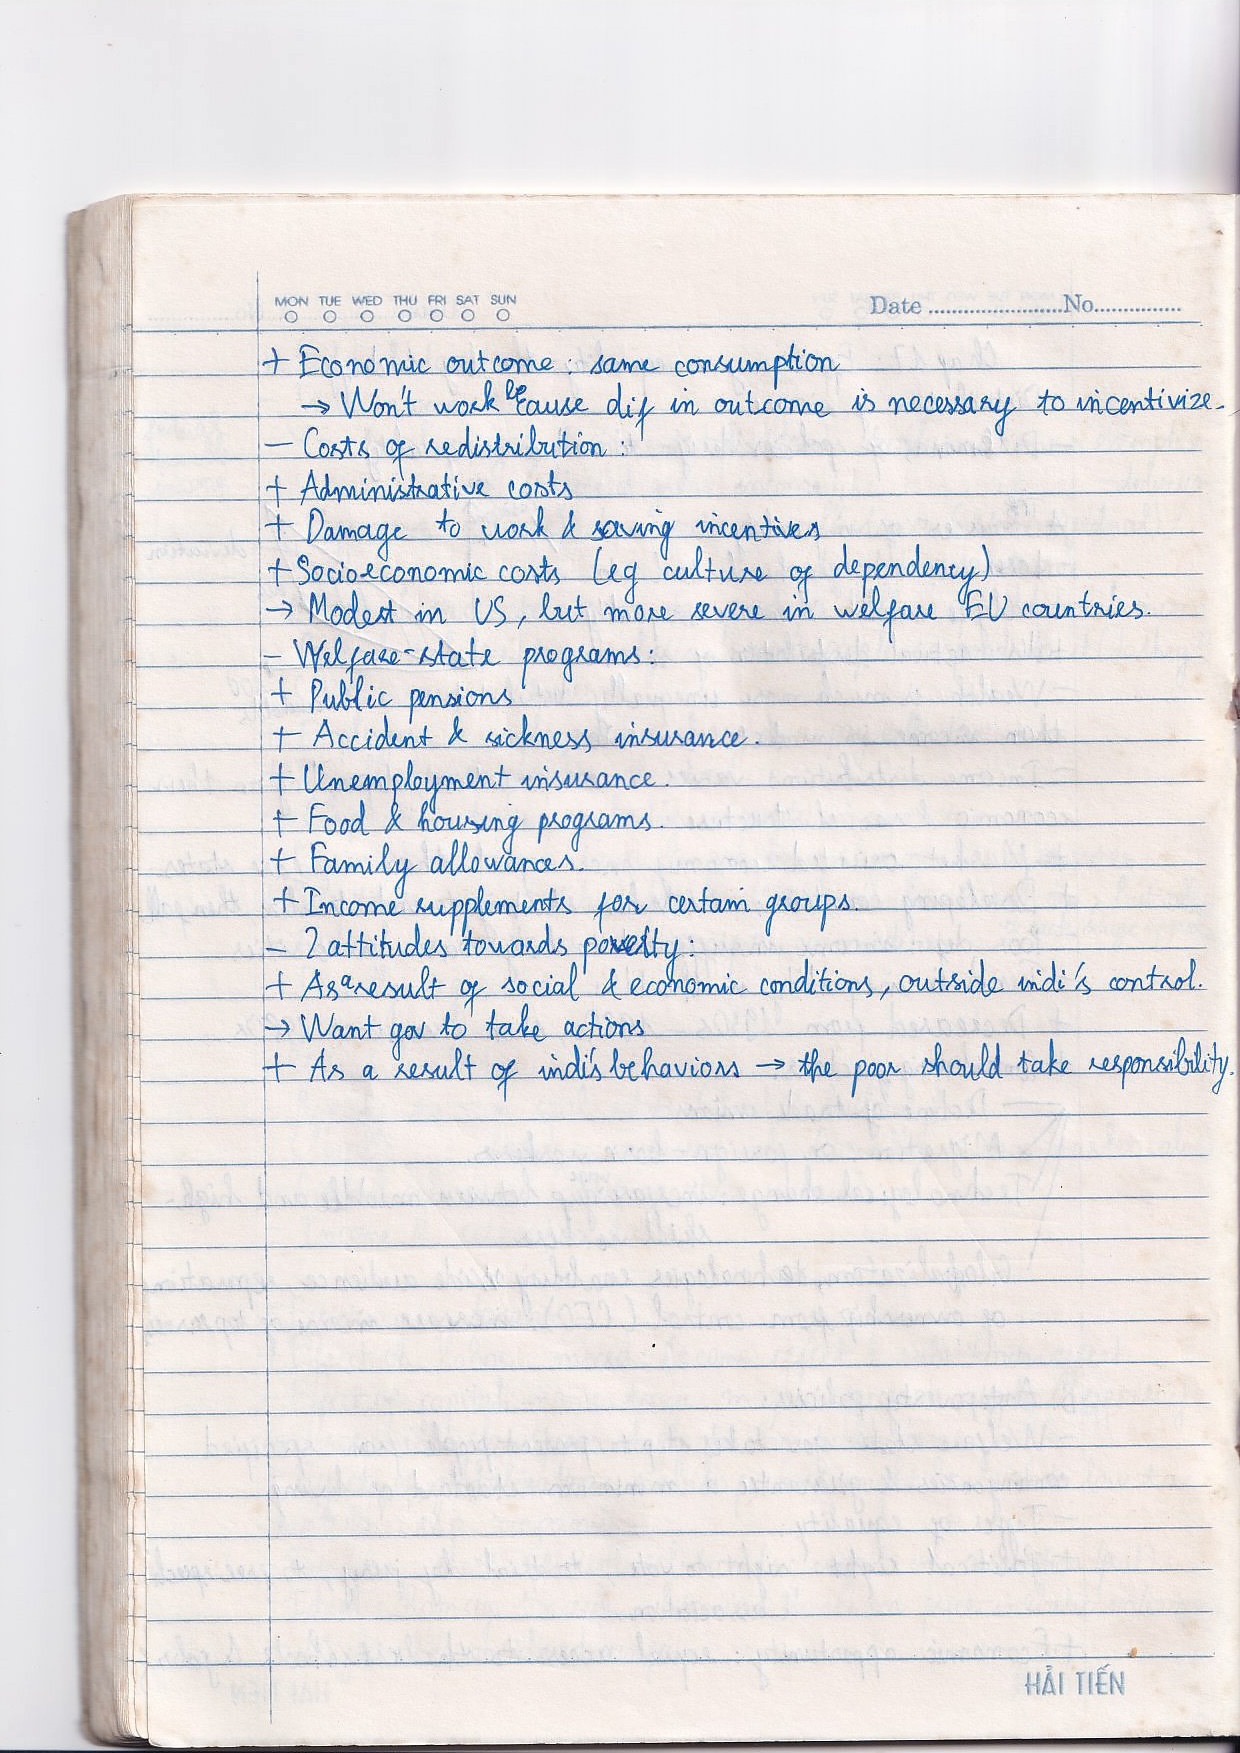 MON TUE WED THU FRI SAT SUN
Date ........................No................
+ Economic outcome : same consumption
→ Won't work be'cause dif in outcome is necessary to incentivize.
- Costs of redistribution :
+ Administrative costs
+ Damage to work & saving incentives
+ Socioeconomic costs (eg culture of dependency)
→ Modest in US, but more severe in welfare EU countries.
- Welfare-state programs :
+ Public pensions
+ Accident & sickness insurance.
+ Unemployment insurance.
+ Food & housing programs.
+ Family allowances.
+ Income supplements for certain groups.
- 2 attitudes towards poverty :
+ As a result of social & economic conditions, outside indi's control.
→ Want gov to take actions
+ As a result of indi's behaviors → the poor should take responsibility.
HẢI TIẾN